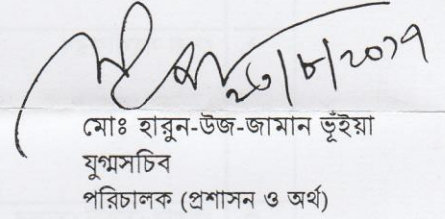 ২৩/৮/২০১৭
মোঃ হারুন-উজ-জামান ভূঁইয়া
যুগ্মসচিব
পরিচালক (প্রশাসন ও অর্থ)